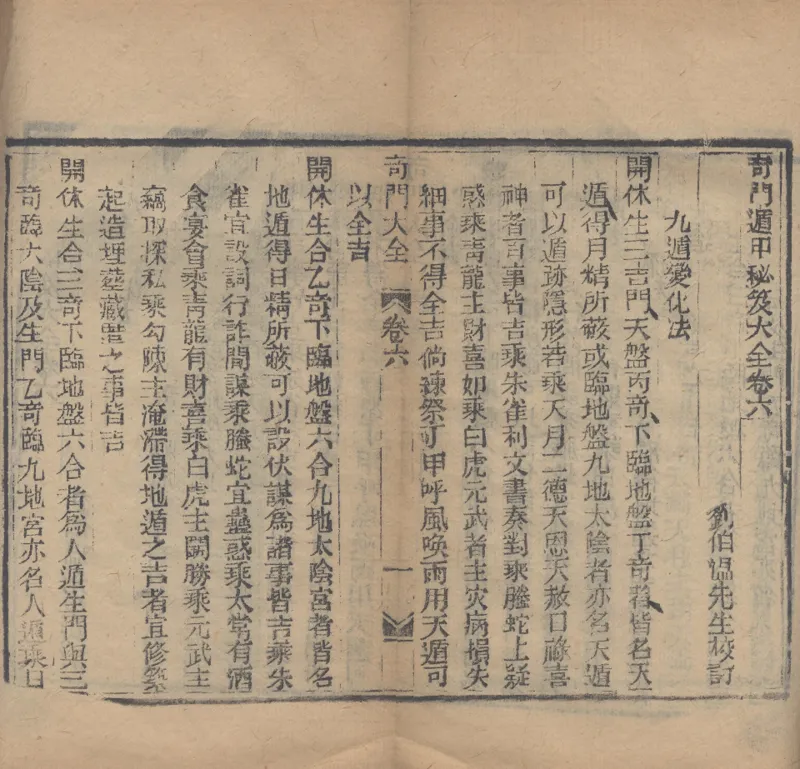 奇門遁甲秘笈大全卷六
劉伯温先生校訂
九遁變化法
開休生三吉門天盤丙奇下臨地盤丁奇者皆名天
遁得月精所蔽或臨地盤九地太陰者亦名天遁
可以遁跡隱形若乘天月二德天恩天赦日祿喜
神者百事皆吉乘朱雀利文書奏對乘螣蛇上疑
惑乘靑龍主財喜如乘白虎元武者主灾病損失
細事不得全吉倘鍊祭丁甲呼風喚雨用天遁可
以全吉
奇門大全 卷六 一
開休生合乙奇下臨地盤六合九地太陰宮者皆名
地遁得日精所蔽可以設伏謀爲諸事皆吉乘朱
雀宜設詞行詐間諜乘螣蛇宜蠱惑乘太常有酒
食宴會乘靑龍有財喜乘白虎主鬭勝乘元武主
竊取探私乘勾陳主淹滯得地遁之吉者宜修築
起造埋葬藏置之事皆吉
開休生合三奇下臨地盤六合者爲人遁生門與三
奇臨太陰及生門乙奇臨九地宮亦名人遁乘日